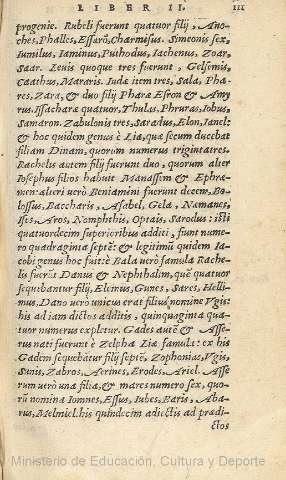 LIBER II. III
progenie. Rubeli fuerunt quatuor filij, Ano-
ches, Phalles, Essarō, Charmisus. Simeonis sex,
Iumilus, Iaminus, Puthodus, Iachenus, Zoar,
Saar. Leuis quoque tres fuerunt, Gelsemis,
Caathus, Mararis. Iudæ item tres, Sala, Pha-
res, Zara, & duo filij Pharæ Esron & Amy
rus. Issacharæ quatuor, Thulas, Phruras, Iobus,
Samaron. Zabulonis tres, Saradus, Elon, Ianel:
& hoc quidem genus è Lia, quæ secum ducebat
filiam Dinam, quorum numerus triginta tres.
Rachelis autem filij fuerunt duo, quorum alter
Iosephus filios habuit Manassem & Ephræ-
men: alteri uerò Beniamini fuerunt decem, Bo-
lossus, Baccharis, Asabel, Gela, Namanes,
Ises, Aros, Nomphthis, Optais, Sarodus: isti
quatuordecim superioribus additi, fiunt nume-
ro quadraginta septē: & legitimū quidem Ia-
cobi genus hoc fuit: è Bala uerò famula Rache-
lis fuerūt Danus & Nephthalim, quē quatuor
sequebantur filij, Eleinus, Gunes, Sares, Helli-
mus. Dano uerò unicus erat filius nomine Vgis:
his ad iam dictos additis, quinquaginta qua-
tuor numerus expletur. Gades autē & Asse-
rus nati fuerunt è Zelpha Liæ famula: ex his
Gadem sequebātur filij septē, Zophonias, Vgis,
Sunis, Zabros, Aerines, Erodes, Ariel. Asse
rum uerò una filia, & mares numero sex, quo-
rū nomina Iomnes, Essus, Iubes, Baris, Aba-
rus, Melmiel. his quindecim adiectis ad prædi-
ctos
Ministerio de Educación, Cultura y Deporte